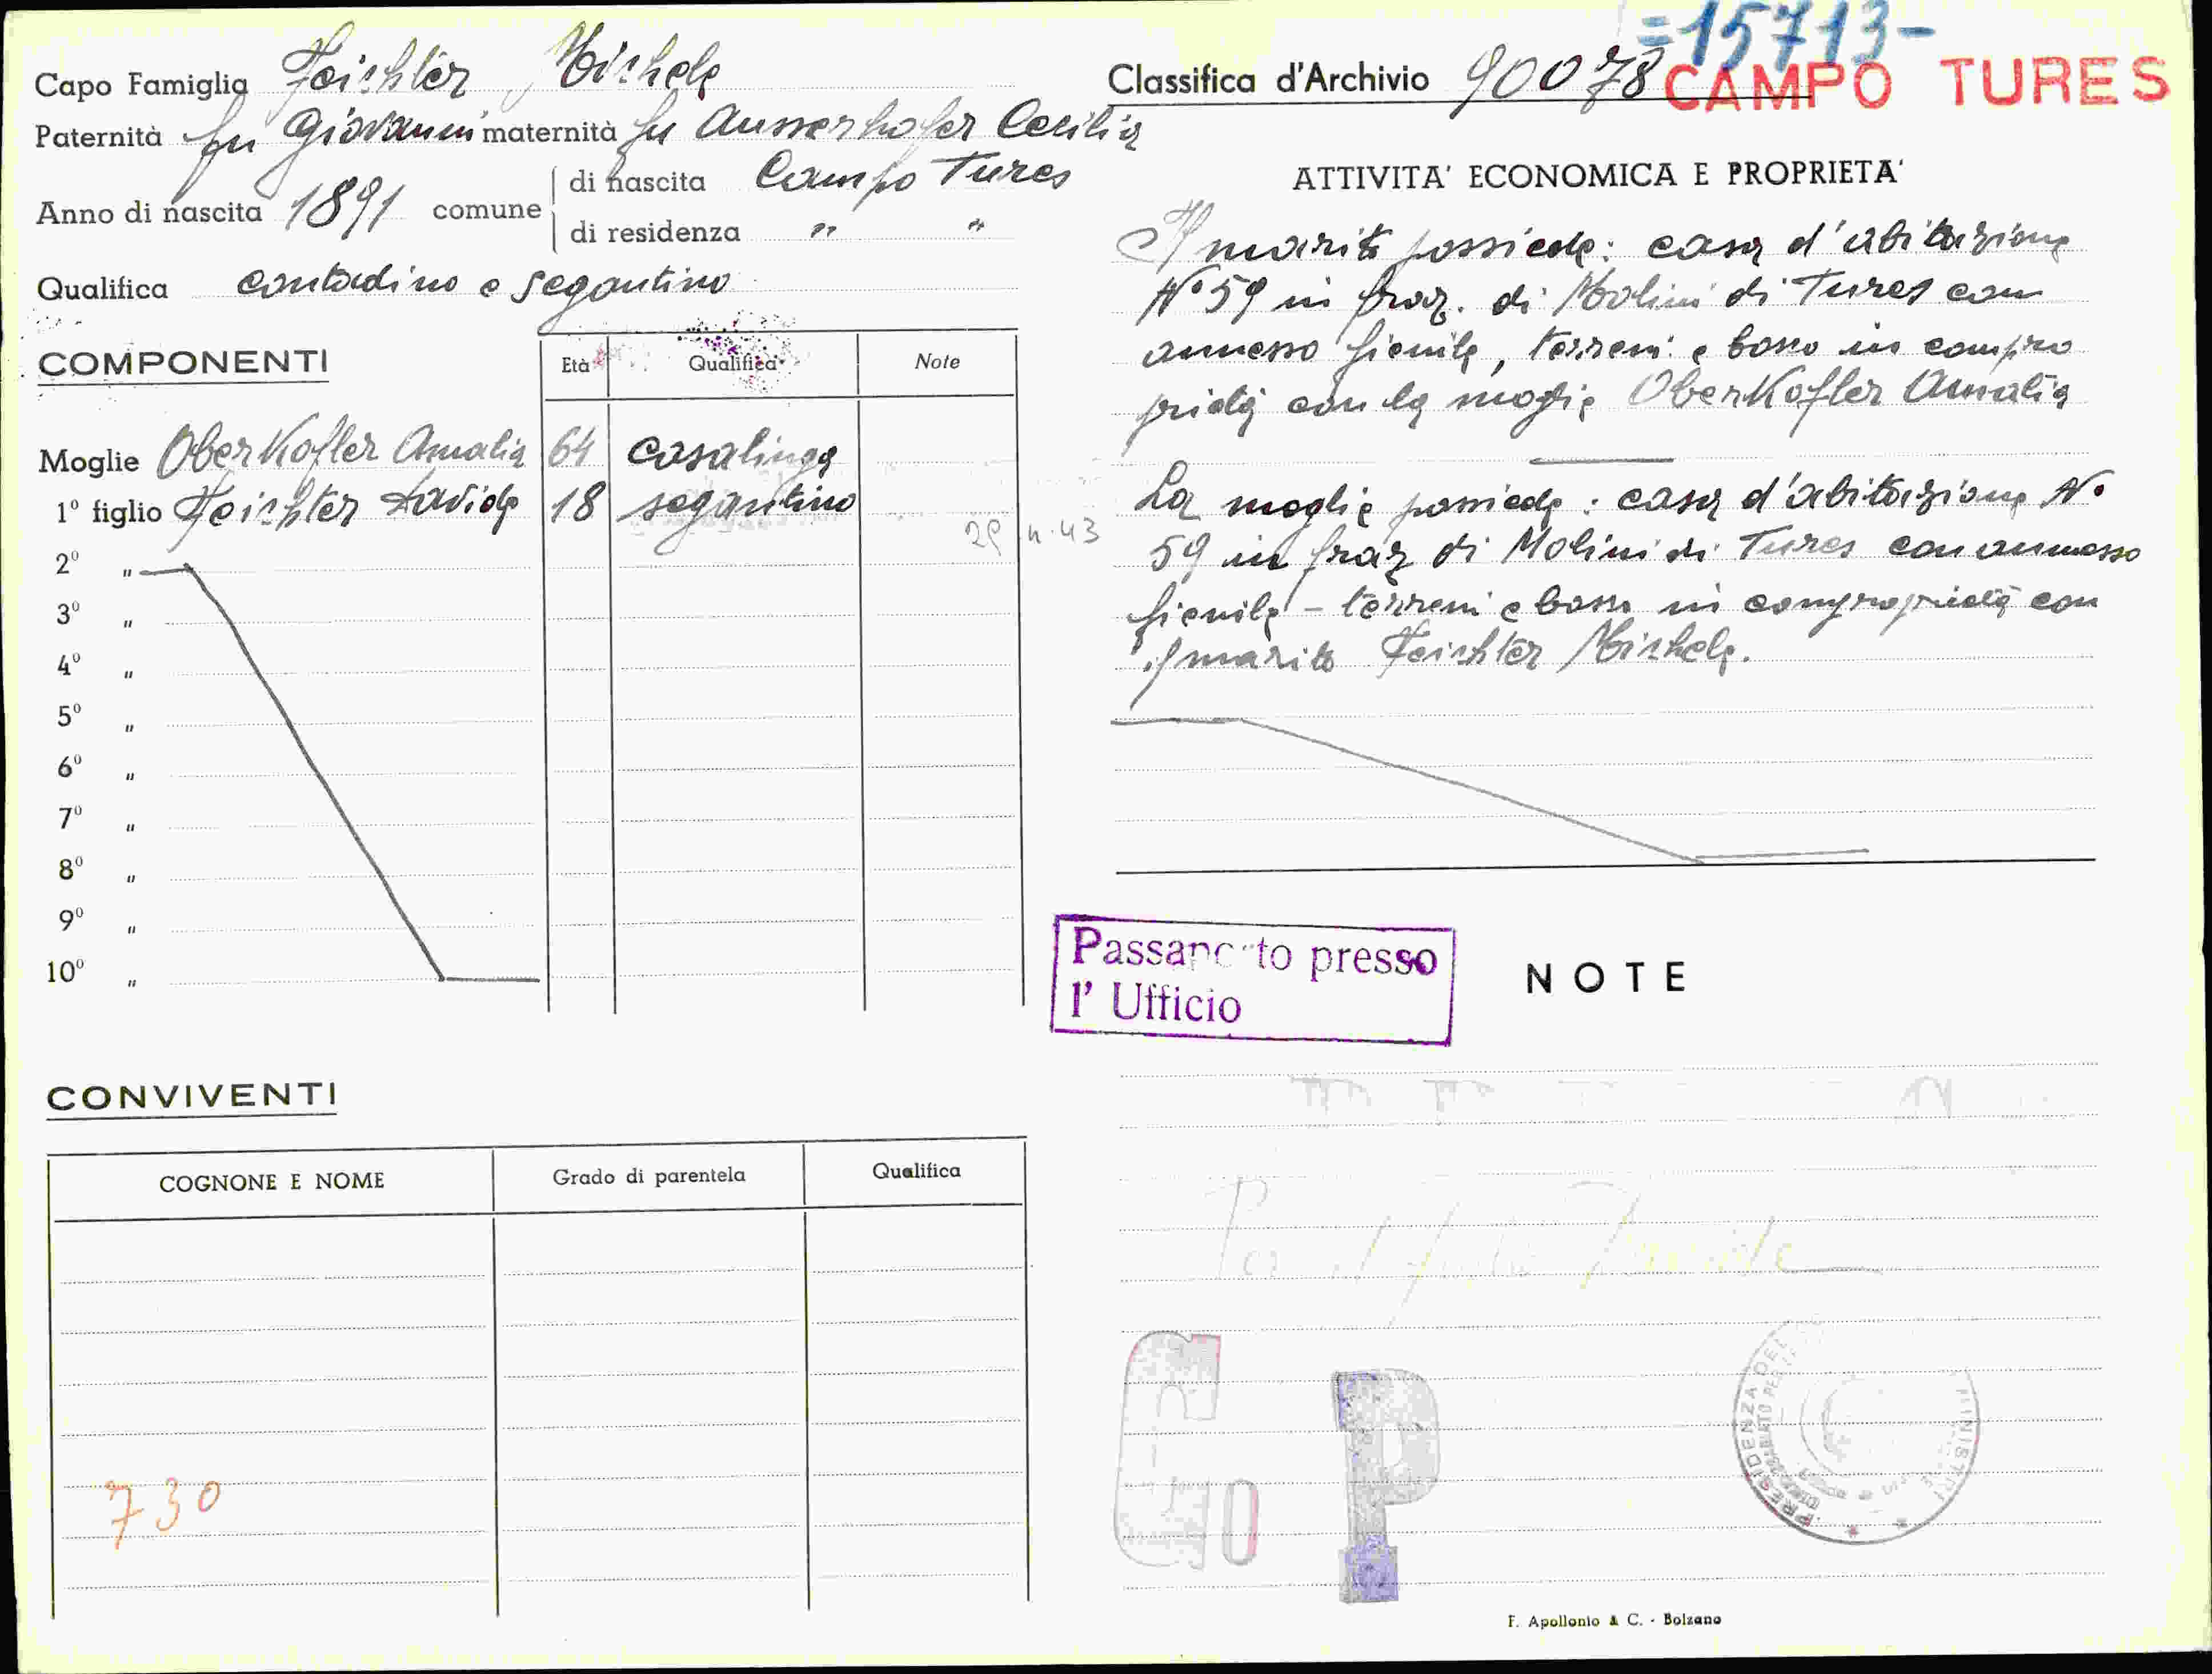 =15713-
Capo Famiglia Feichter Michele
Classifica d'Archivio 90078 CAMPO TURES
Paternità fu Giovanni maternità fu Ausserhofer Cecilia
Anno di nascita 1891 comune di nascita Campo Tures
di residenza " "
Qualifica contadino e segantino
COMPONENTI Età Qualifica Note
Moglie Oberkofler Amalia 64 casalinga
1° figlio Feichter Davide 18 segantino
29 n. 43
2° "
3° "
4° "
5° "
6° "
7° "
8° "
9° "
10° "
CONVIVENTI
COGNONE E NOME Grado di parentela Qualifica
730
ATTIVITA' ECONOMICA E PROPRIETA'
Il marito possiede: casa d'abitazione
N° 59 in fraz. di Molini di Tures con
annesso fienile, terreni e bosco in compro
prietà con la moglie Oberkofler Amalia
La moglie possiede: casa d'abitazione N°
59 in fraz di Molini di Tures con annesso
fienile - terreni e bosco in comproprietà con
il marito Feichter Michele.
Passaporto presso
l' Ufficio
NOTE
P
PRESIDENZA DEL
F. Apollonio & C. - Bolzano